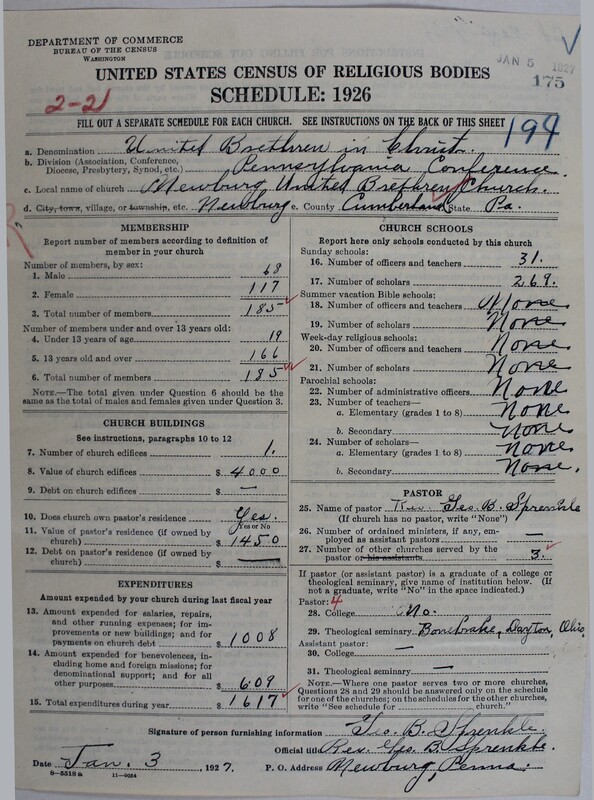 DEPARTMENT OF COMMERCE
BUREAU OF THE CENSUS
WASHINGTON
JAN 5 1927
175
UNITED STATES CENSUS OF RELIGIOUS BODIES
SCHEDULE: 1926
2-21
FILL OUT A SEPARATE SCHEDULE FOR EACH CHURCH. SEE INSTRUCTIONS ON THE BACK OF THIS SHEET
194
a. Denomination United Brethren in Christ.
b. Division (Association, Conference, Diocese, Presbytery, Synod, etc.) Pennsylvania Conference.
c. Local name of church Newburg United Brethren Church.
d. City, town, village, or township, etc. Newburg e. County Cumberland State Pa.
MEMBERSHIP
Report number of members according to definition of
member in your church
Number of members, by sex:
1. Male 68
2. Female 117
3. Total number of members 185
Number of members under and over 13 years old:
4. Under 13 years of age 19
5. 13 years old and over 166
6. Total number of members 185
NOTE.—The total given under Question 6 should be
the same as the total of males and females given under Question 3.
CHURCH BUILDINGS
See instructions, paragraphs 10 to 12
7. Number of church edifices 1.
8. Value of church edifices $ 4000
9. Debt on church edifices $ —
10. Does church own pastor's residence Yes.
Yes or No
11. Value of pastor's residence (if owned by
church) $ 1450
12. Debt on pastor's residence (if owned by
church) $ —
EXPENDITURES
Amount expended by your church during last fiscal year
13. Amount expended for salaries, repairs,
and other running expenses; for im-
provements or new buildings; and for
payments on church debt $ 1008
14. Amount expended for benevolences, in-
cluding home and foreign missions; for
denominational support; and for all
other purposes $ 609
15. Total expenditures during year $ 1617
CHURCH SCHOOLS
Report here only schools conducted by this church
Sunday schools:
16. Number of officers and teachers 31.
17. Number of scholars 268.
Summer vacation Bible schools:
18. Number of officers and teachers None
19. Number of scholars None
Week-day religious schools:
20. Number of officers and teachers None
21. Number of scholars None
Parochial schools:
22. Number of administrative officers None
23. Number of teachers—
a. Elementary (grades 1 to 8) None
b. Secondary None
24. Number of scholars—
a. Elementary (grades 1 to 8) None
b. Secondary None.
PASTOR
25. Name of pastor Rev. Geo. B. Sprenkle
(If church has no pastor, write "None")
26. Number of ordained ministers, if any, em-
ployed as assistant pastors —
27. Number of other churches served by the
pastor or his assistants 3.
If pastor (or assistant pastor) is a graduate of a college or
theological seminary, give name of institution below. (If
not a graduate, write "No" in the space indicated.)
Pastor: 4
28. College No.
29. Theological seminary Bonebrake, Dayton, Ohio.
Assistant pastor: —
30. College —
31. Theological seminary —
NOTE.—Where one pastor serves two or more churches,
Questions 28 and 29 should be answered only on the schedule
for one of the churches; on the schedules for the other churches,
write "See schedule for church."
Signature of person furnishing information Geo. B. Sprenkle.
Official title Rev. Geo. B. Sprenkle.
Date Jan. 3, 1927.
P. O. Address Newburg, Penna.
8—5518a 11—9054